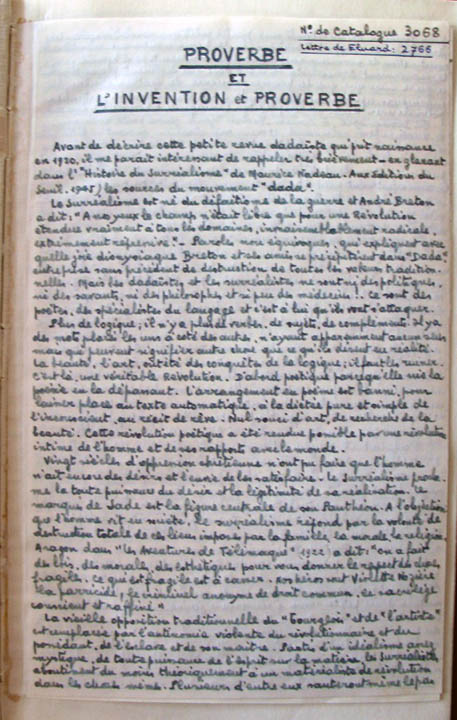 N° de Catalogue 3068
Lettre de Eluard: 2766
PROVERBE
ET
L'INVENTION et PROVERBE
Avant de décrire cette petite revue dadaïste qui prit naissance
en 1920, il me paraît intéressant de rappeler très brièvement - en glanant
dans l'"Histoire du Surréalisme" de Maurice Nadeau - Aux Editions du
Seuil. 1945) les sources du mouvement "dada".
Le Surréalisme est né du défaitisme de la guerre et André Breton
a dit: "A mes yeux le champ n'était libre que pour une Révolution
étendue vraiment à tous les domaines, invraisemblablement radicale,
extrêmement répressive" - Paroles non équivoques, qui expliquent avec
quelle joie dionysiaque Breton et ses amis se précipitèrent dans "Dada"
entreprise sans précédent de destruction de toutes les valeurs tradition-
nelles. Mais les dadaïstes et les surréalistes ne sont ni des politiques,
ni des savants, ni des philosophes et si peu des médecins!. Ce sont des
poètes, des spécialistes du langage et c'est à lui qu'ils vont s'attaquer.
Plus de logique; il n'y a plus de verbes, de sujets, de compléments. Il y a
des mots placés les uns à coté des autres, n'ayant apparemment aucun sens
mais qui peuvent signifier autre chose que ce qu'ils disent en réalité.
La beauté, l'art, ont été des conquêtes de la logique; il faut les ruiner.
C'est là, une véritable Révolution. D'abord poétique parce qu'elle nie la
poésie en la dépassant. L'arrangement en poème est banni, pour
laisser place au texte automatique, à la dictée pure et simple de
l'inconscient, au récit de rêve. Nul souci d'art, de recherche de la
beauté. Cette révolution poétique a été rendue possible par une révolution
intime de l'homme et de ses rapports avec le monde.
Vingt siècles d'oppression chrétienne n'ont pu faire que l'homme
n'ait encore des désirs et l'envie de les satisfaire. Le Surréalisme procla-
me la toute puissance du désir et la légitimité de sa réalisation. Le
marquis de Sade est la figure centrale de son Panthéon. A l'objection
que l'homme vit en société, le surréalisme répond par la volonté de
destruction totale de ces liens imposés par la famille, la morale, la religion.
Aragon dans "les Aventures de Télémaque" (1922) a dit: "on a fait
des lois, des morales, des esthétiques pour vous donner le respect des choses
fragiles. Ce qui est fragile est à casser. Nos héros sont Violette Nozière
la parricide, le criminel anonyme de droit commun, le sacrilège
conscient et raffiné".
La vieille opposition traditionnelle du "bourgeois" et de "l'artiste"
est remplacée par l'antinomie violente du révolutionnaire et du
possédant, de l'esclave et de son maître. Partis d'un idéalisme assez
mystique, de toute puissance de l'esprit sur la matière, les Surréalistes
aboutirent du moins théoriquement à un matérialisme de révolution
dans les choses même. Plusieurs d'entre eux sauteront même le pas